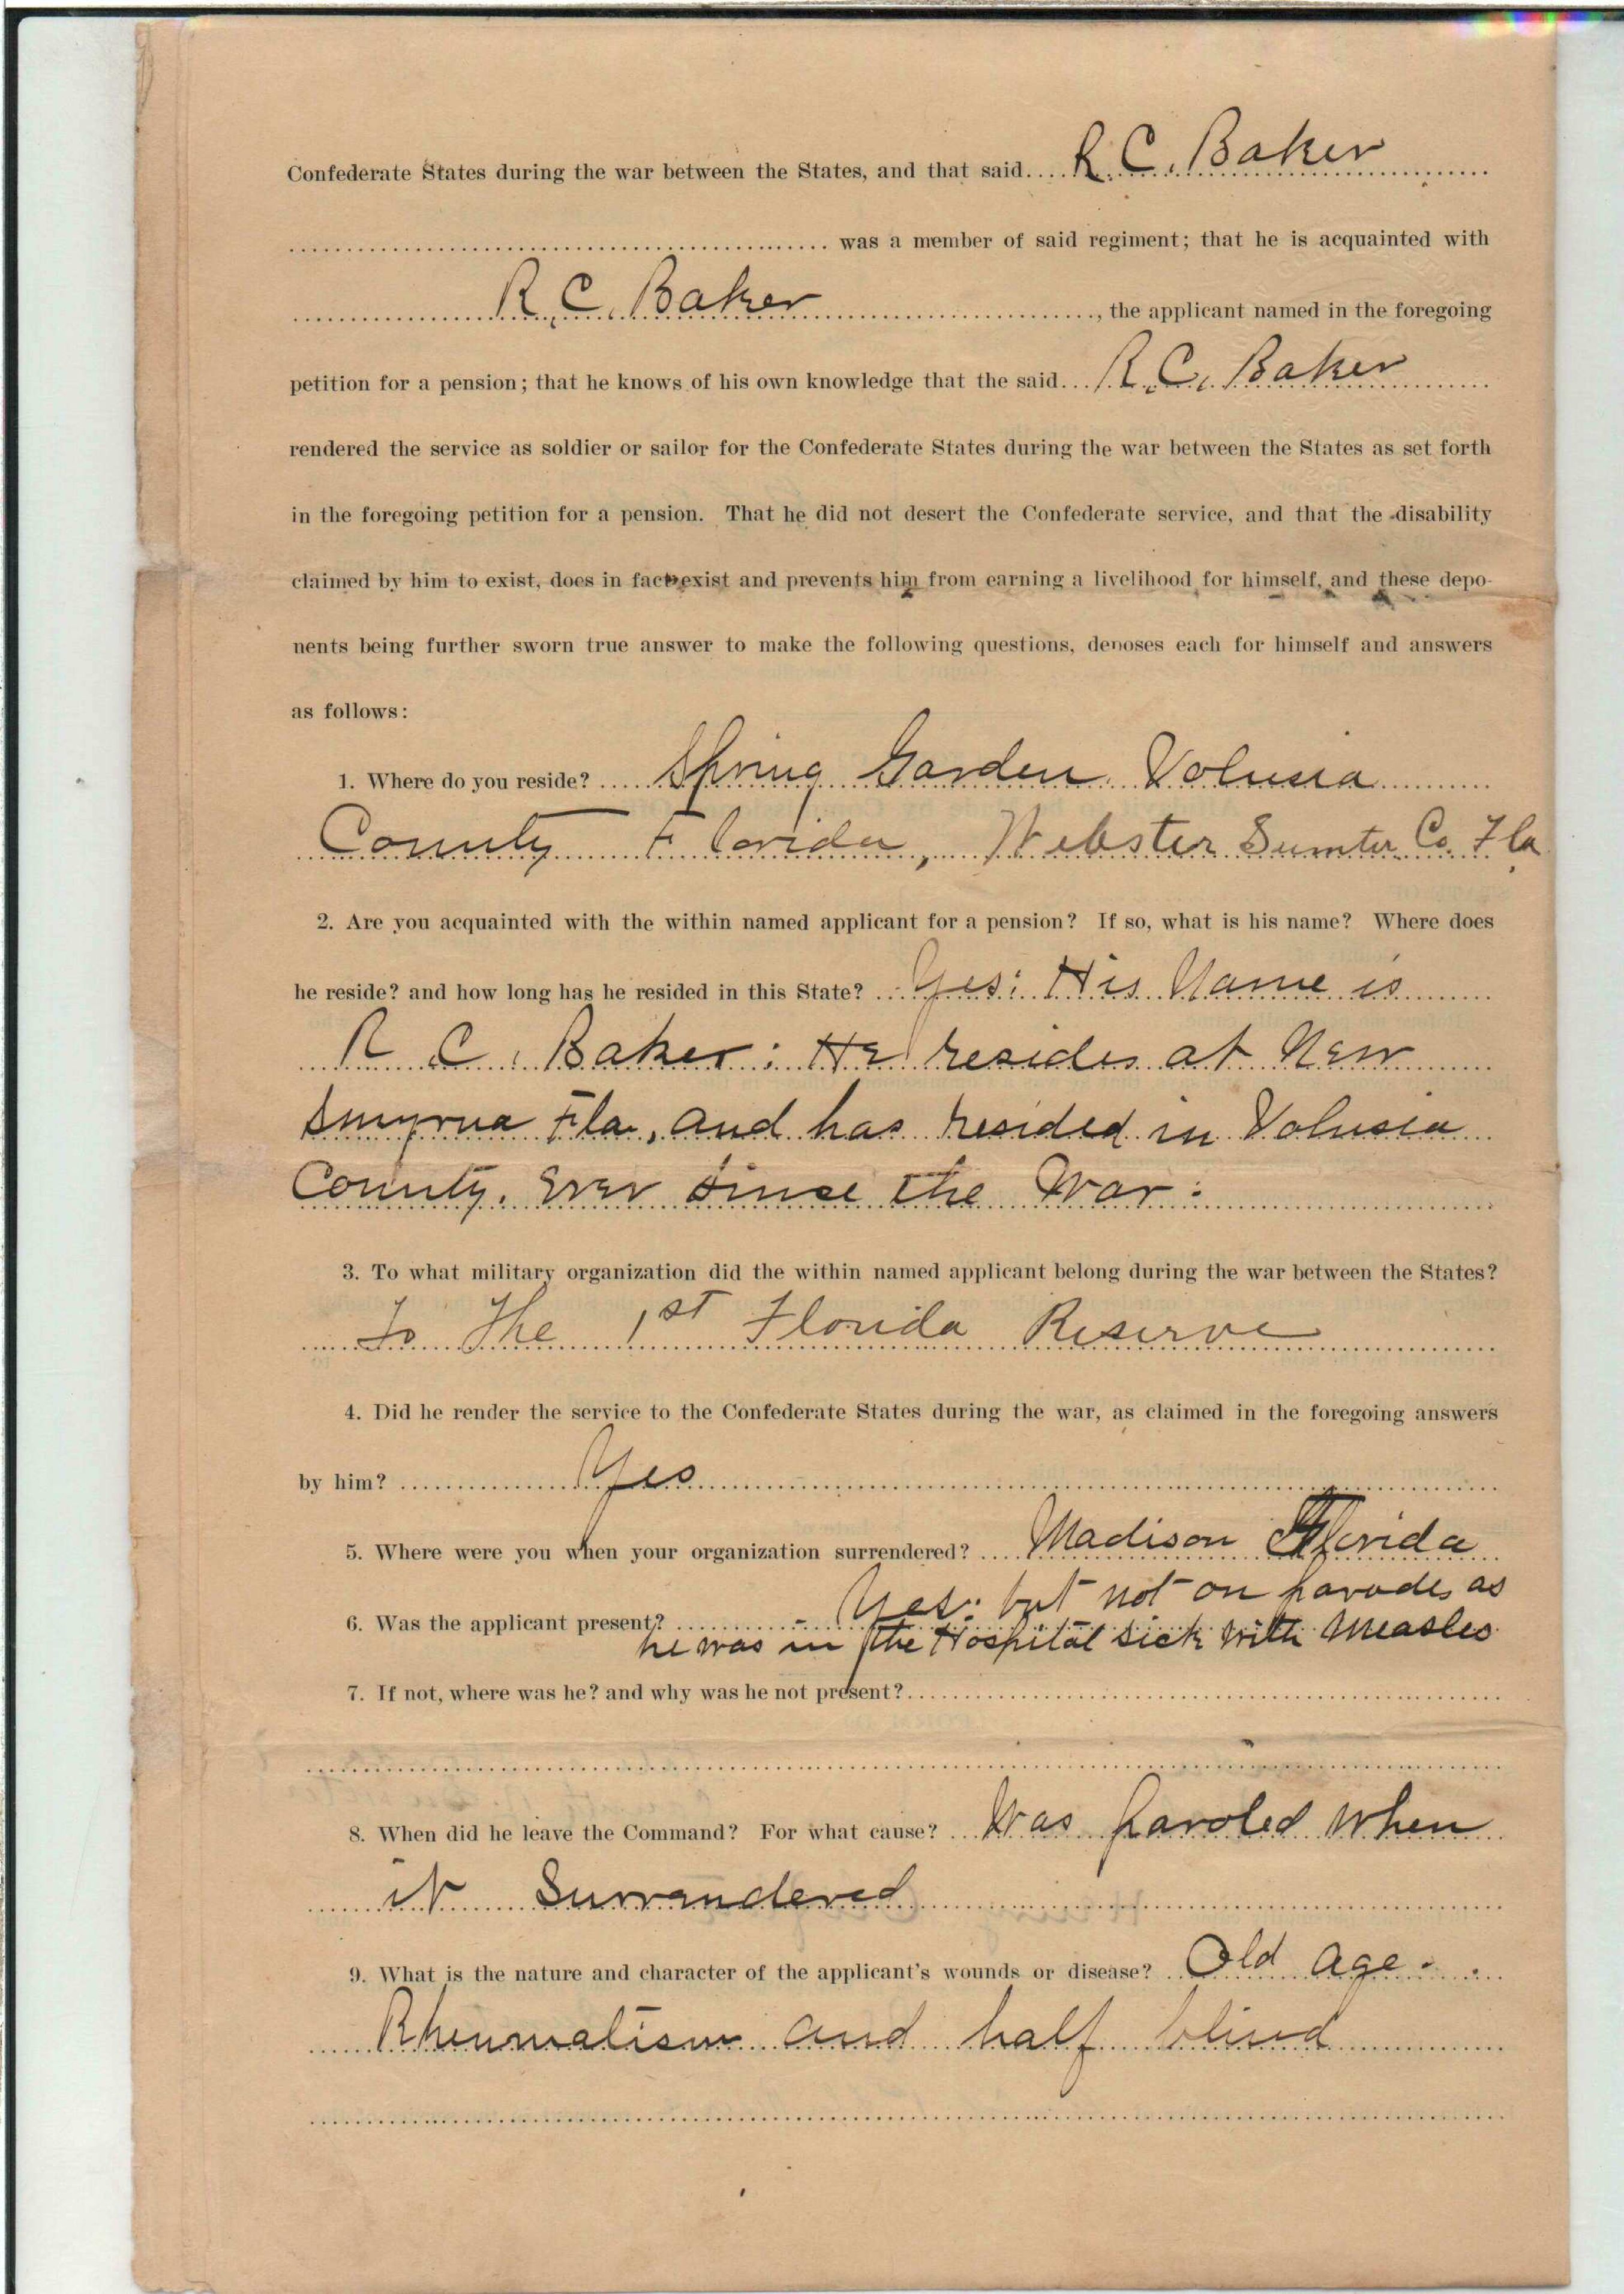 Confederate States during the war between the States, and that said.... R. C. Baker
was a member of said regiment; that he is acquainted with
R. C. Baker, the applicant named in the foregoing
petition for a pension; that he knows of his own knowledge that the said... R. C. Baker
rendered the service as soldier or sailor for the Confederate States during the war between the States as set forth
in the foregoing petition for a pension. That he did not desert the Confederate service, and that the disability
claimed by him to exist, does in fact exist and prevents him from earning a livelihood for himself, and these depo-
nents being further sworn true answer to make the following questions, deposes each for himself and answers
as follows:
1. Where do you reside? Spring Garden Volusia
County Florida, Webster Sumter Co. Fla
2. Are you acquainted with the within named applicant for a pension? If so, what is his name? Where does
he reside? and how long has he resided in this State? Yes: His Name is
R. C. Baker: He resides at New
Smyrna Fla, and has resided in Volusia
County. Ever since the War:
3. To what military organization did the within named applicant belong during the war between the States?
To The 1st Florida Reserve
4. Did he render the service to the Confederate States during the war, as claimed in the foregoing answers
by him? Yes
5. Where were you when your organization surrendered? Madison Florida
6. Was the applicant present? Yes: but not on parade, as
he was in the Hospital sick with Measles
7. If not, where was he? and why was he not present?
8. When did he leave the Command? For what cause? Was paroled when
it Surrandered
9. What is the nature and character of the applicant's wounds or disease? Old age.
Rheumatism and half blind